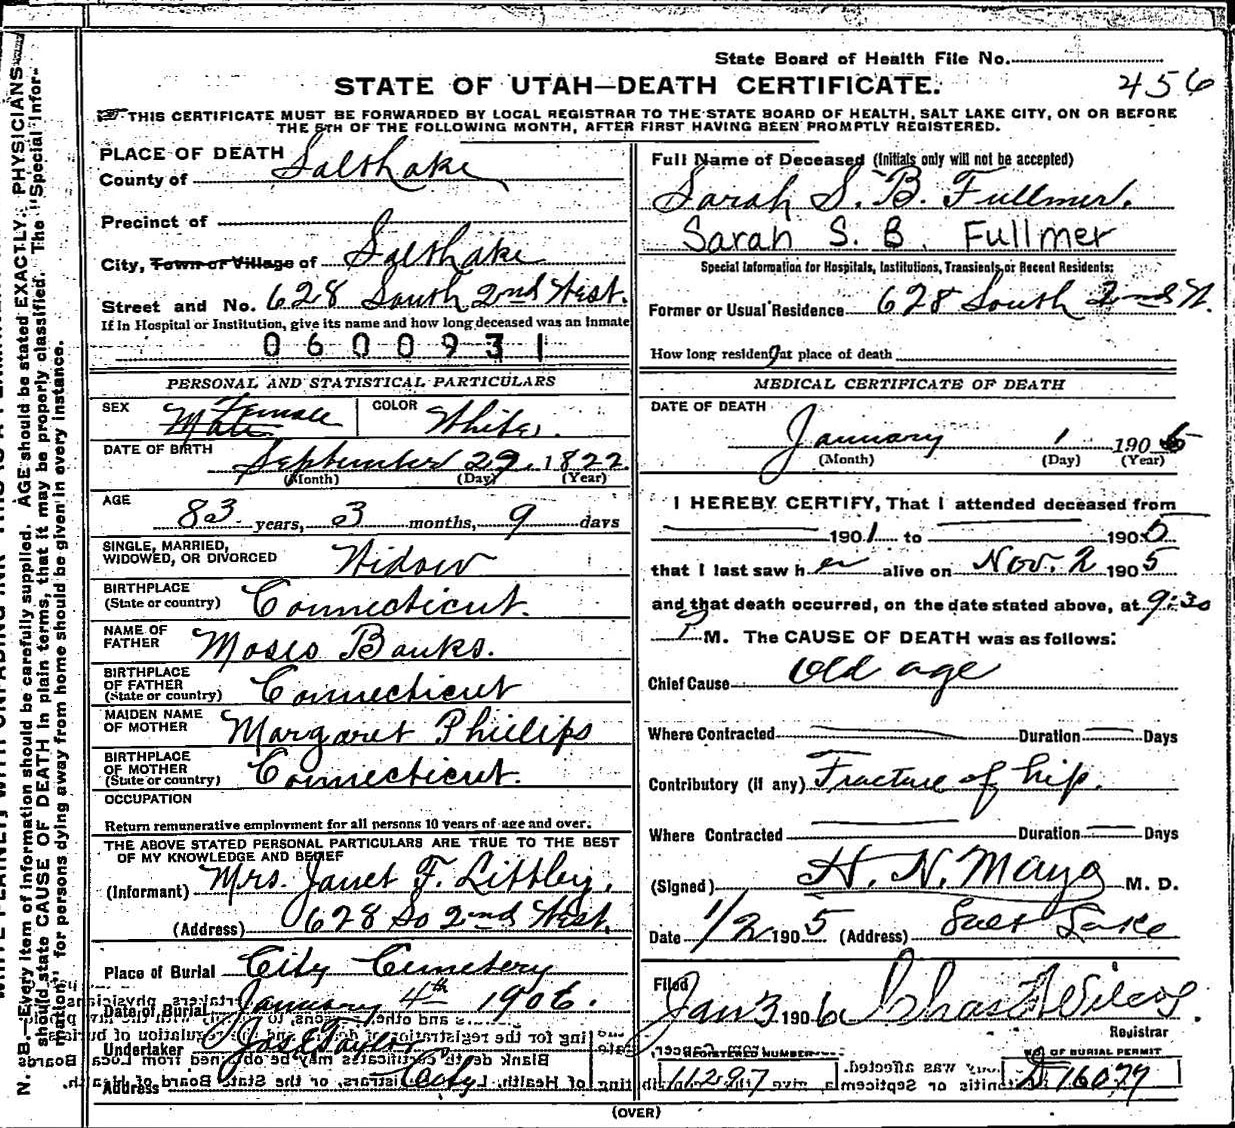 State Board of Health File No.
STATE OF UTAH—DEATH CERTIFICATE.
456
THIS CERTIFICATE MUST BE FORWARDED BY LOCAL REGISTRAR TO THE STATE BOARD OF HEALTH, SALT LAKE CITY, ON OR BEFORE
THE 5TH OF THE FOLLOWING MONTH, AFTER FIRST HAVING BEEN PROMPTLY REGISTERED.
PLACE OF DEATH
County of Salt Lake
Precinct of
City, Town or Village of Salt Lake
Street and No. 628 South 2nd West.
If in Hospital or Institution, give its name and how long deceased was an inmate
0600931
PERSONAL AND STATISTICAL PARTICULARS
SEX Male Female COLOR White.
DATE OF BIRTH September 29, 1822.
(Month) (Day) (Year)
AGE
83 years, 3 months, 9 days
SINGLE, MARRIED,
WIDOWED, OR DIVORCED Widow
BIRTHPLACE
(State or country) Connecticut.
NAME OF
FATHER Moses Banks.
BIRTHPLACE
OF FATHER
(State or country) Connecticut
MAIDEN NAME
OF MOTHER Margaret Phillips
BIRTHPLACE
OF MOTHER
(State or country) Connecticut.
OCCUPATION
Return remunerative employment for all persons 10 years of age and over.
THE ABOVE STATED PERSONAL PARTICULARS ARE TRUE TO THE BEST
OF MY KNOWLEDGE AND BELIEF
(Informant) Mrs. Janet F.
(Address) 628 So 2nd West.
Place of Burial City Cemetery
Date of Burial January 4th 1906.
Undertaker Jos E Taylor
Address City
Full Name of Deceased (Initials only will not be accepted)
Sarah S. B. Fullmer.
Sarah S. B. Fullmer
Special Information for Hospitals, Institutions, Transients, or Recent Residents:
Former or Usual Residence 628 South 2nd W.
How long resident at place of death
MEDICAL CERTIFICATE OF DEATH
DATE OF DEATH
January 1 190
(Month) (Day) (Year)
I HEREBY CERTIFY, That I attended deceased from
1901 to 1905
that I last saw her alive on Nov. 2 1905
and that death occurred, on the date stated above, at 9:30
P M. The CAUSE OF DEATH was as follows:
Chief Cause Old age
Where Contracted Duration Days
Contributory (if any) Fracture of hip.
Where Contracted Duration Days
(Signed) H. N. Mayo M. D.
Date 1/2 1905 (Address) Salt Lake
Filed
Jan 3 1906 Chas Wilcox.
Registrar
REGISTERED NUMBER
11297
NO. OF BURIAL PERMIT
D 16077
(OVER)
N. B.—Every item of information should be carefully supplied. AGE should be stated EXACTLY. PHYSICIANS
should state CAUSE OF DEATH in plain terms, that it may be properly classified. The "Special Infor-
mation" for persons dying away from home should be given in every instance.